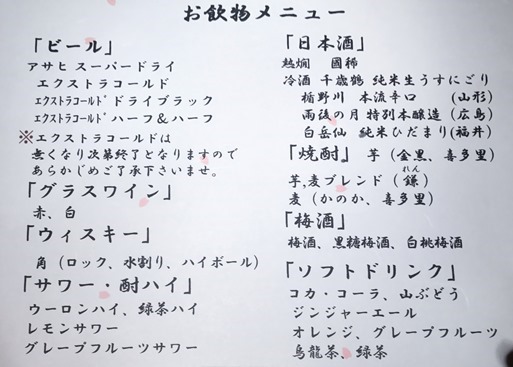 お飲物メニュー
「ビール」
アサヒ スーパードライ
エクストラコールド
エクストラコールド ドライブラック
エクストラコールド ハーフ&ハーフ
※エクストラコールドは
無くなり次第終了となりますので
あらかじめご了承下さいませ。
「グラスワイン」
赤、白
「ウィスキー」
角(ロック、水割り、ハイボール)
「サワー・酎ハイ」
ウーロンハイ、緑茶ハイ
レモンサワー
グレープフルーツサワー
「日本酒」
熱燗 國稀
冷酒 千歳鶴 純米生うすにごり
楯野川 本流辛口 (山形)
雨後の月 特別本醸造(広島)
白岳仙 純米ひだまり(福井)
「焼酎」 芋(金黒、喜多里)
れん
芋,麦ブレンド(鎌)
麦(かのか、喜多里)
「梅酒」
梅酒、黒糖梅酒、白桃梅酒
「ソフトドリンク」
コカ・コーラ、山ぶどう
ジンジャーエール
オレンジ、グレープフルーツ
烏龍茶、緑茶